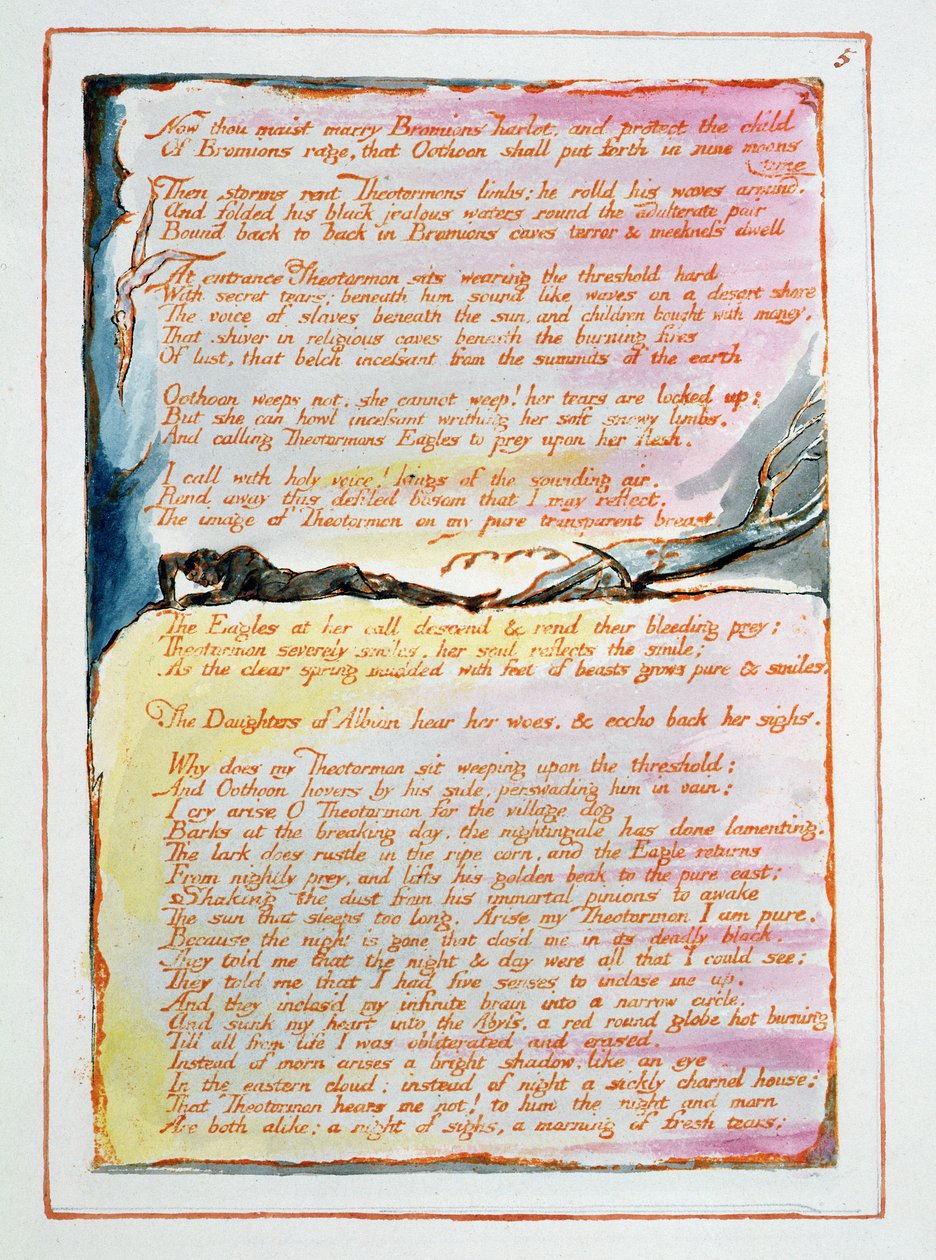 5
Now thou maist marry Bromions harlot, and protect the child
Of Bromions rage, that Oothoon shall put forth in nine moons
time
Then storms rent Theotormons limbs; he rolld his waves around.
And folded his black jealous waters round the adulterate pair
Bound back to back in Bromions caves terror & meekness dwell
At entrance Theotormon sits wearing the threshold hard
With secret tears; beneath him sound like waves on a desart shore
The voice of slaves beneath the sun, and children bought with money.
That shiver in religious caves beneath the burning fires
Of lust, that belch incessant from the summits of the earth
Oothoon weeps not: she cannot weep! her tears are locked up;
But she can howl incessant writhing her soft snowy limbs.
And calling Theotormons Eagles to prey upon her flesh.
I call with holy voice! kings of the sounding air.
Rend away this defiled bosom that I may reflect.
The image of Theotormon on my pure transparent breast.
The Eagles at her call descend & rend their bleeding prey;
Theotormon severely smiles. her soul reflects the smile;
As the clear spring mudded with feet of beasts grows pure & smiles.
The Daughters of Albion hear her woes. & eccho back her sighs.
Why does my Theotormon sit weeping upon the threshold;
And Oothoon hovers by his side, perswading him in vain:
I cry arise O Theotormon for the village dog
Barks at the breaking day. the nightingale has done lamenting.
The lark does rustle in the ripe corn, and the Eagle returns
From nightly prey, and lifts his golden beak to the pure east;
Shaking the dust from his immortal pinions to awake
The sun that sleeps too long. Arise my Theotormon I am pure.
Because the night is gone that clos'd me in its deadly black.
They told me that the night & day were all that I could see;
They told me that I had five senses to inclose me up.
And they inclos'd my infinite brain into a narrow circle.
And sunk my heart into the Abyss, a red round globe hot burning
Till all from life I was obliterated and erased.
Instead of morn arises a bright shadow, like an eye
In the eastern cloud: instead of night a sickly charnel house;
That Theotormon hears me not! to him the night and morn
Are both alike: a night of sighs, a morning of fresh tears;